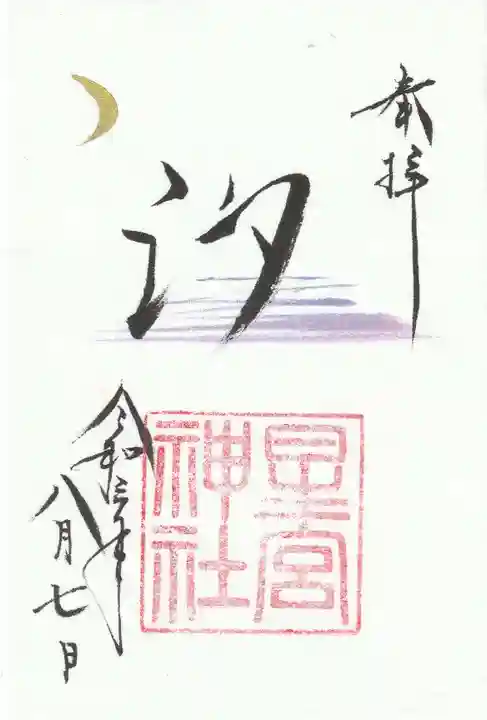 奉拝
汐
皇宮
神社
令和三年
八月七日